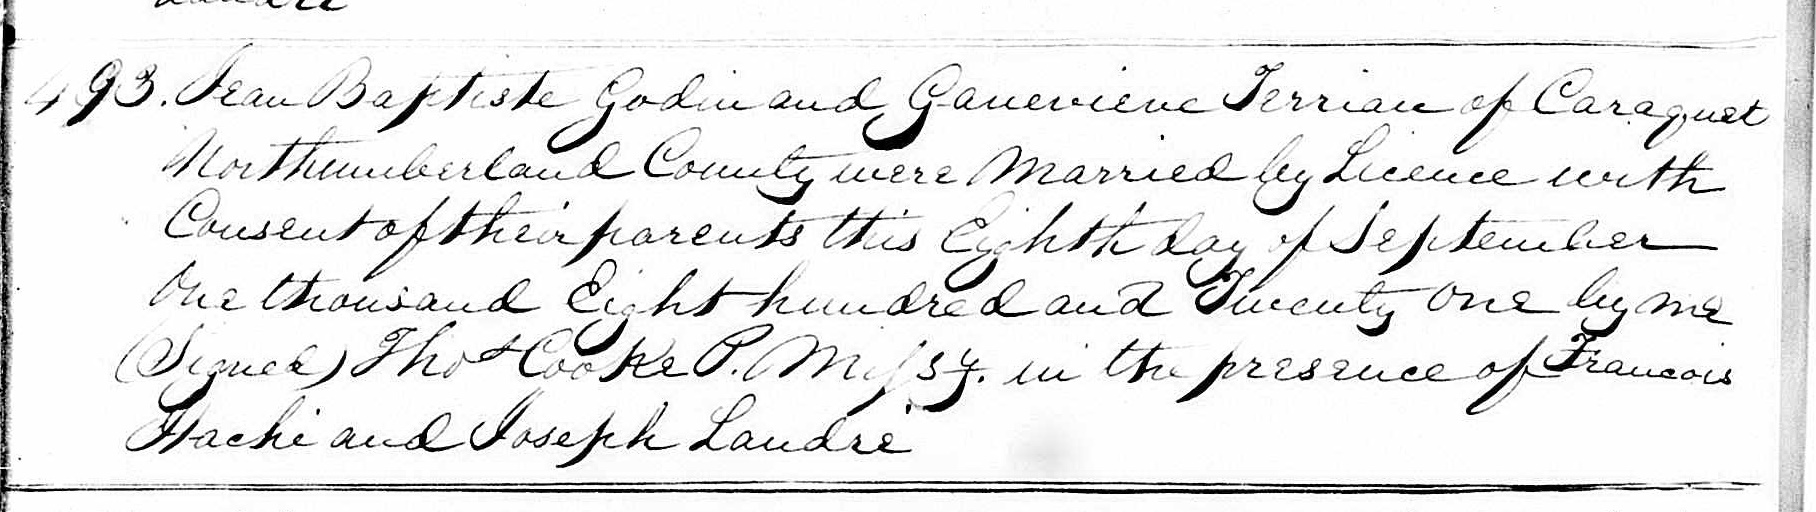 Landre
493. Jean Baptiste Godin and Ganevieve Terriau of Caraquet
Northumberland County were Married by Licence with
Consent of their parents this Eighth day of September
One thousand Eight hundred and Twenty One by me
(Signed) Thos Cooke P. Missy. in the presence of Francois
Hachi and Joseph Landre